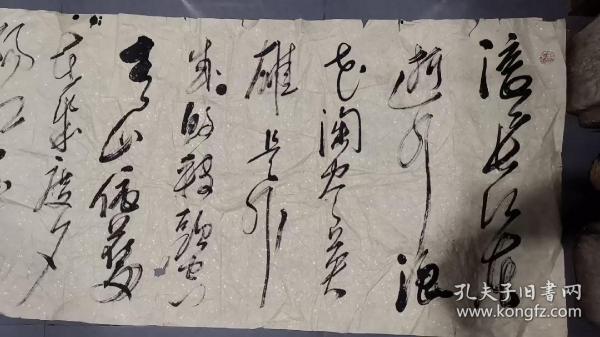 滚长江东
逝水浪
花淘尽英
雄是非
成败转头空
青山依旧
在几度夕
阳红
孔夫子旧书网
www.kongfz.com